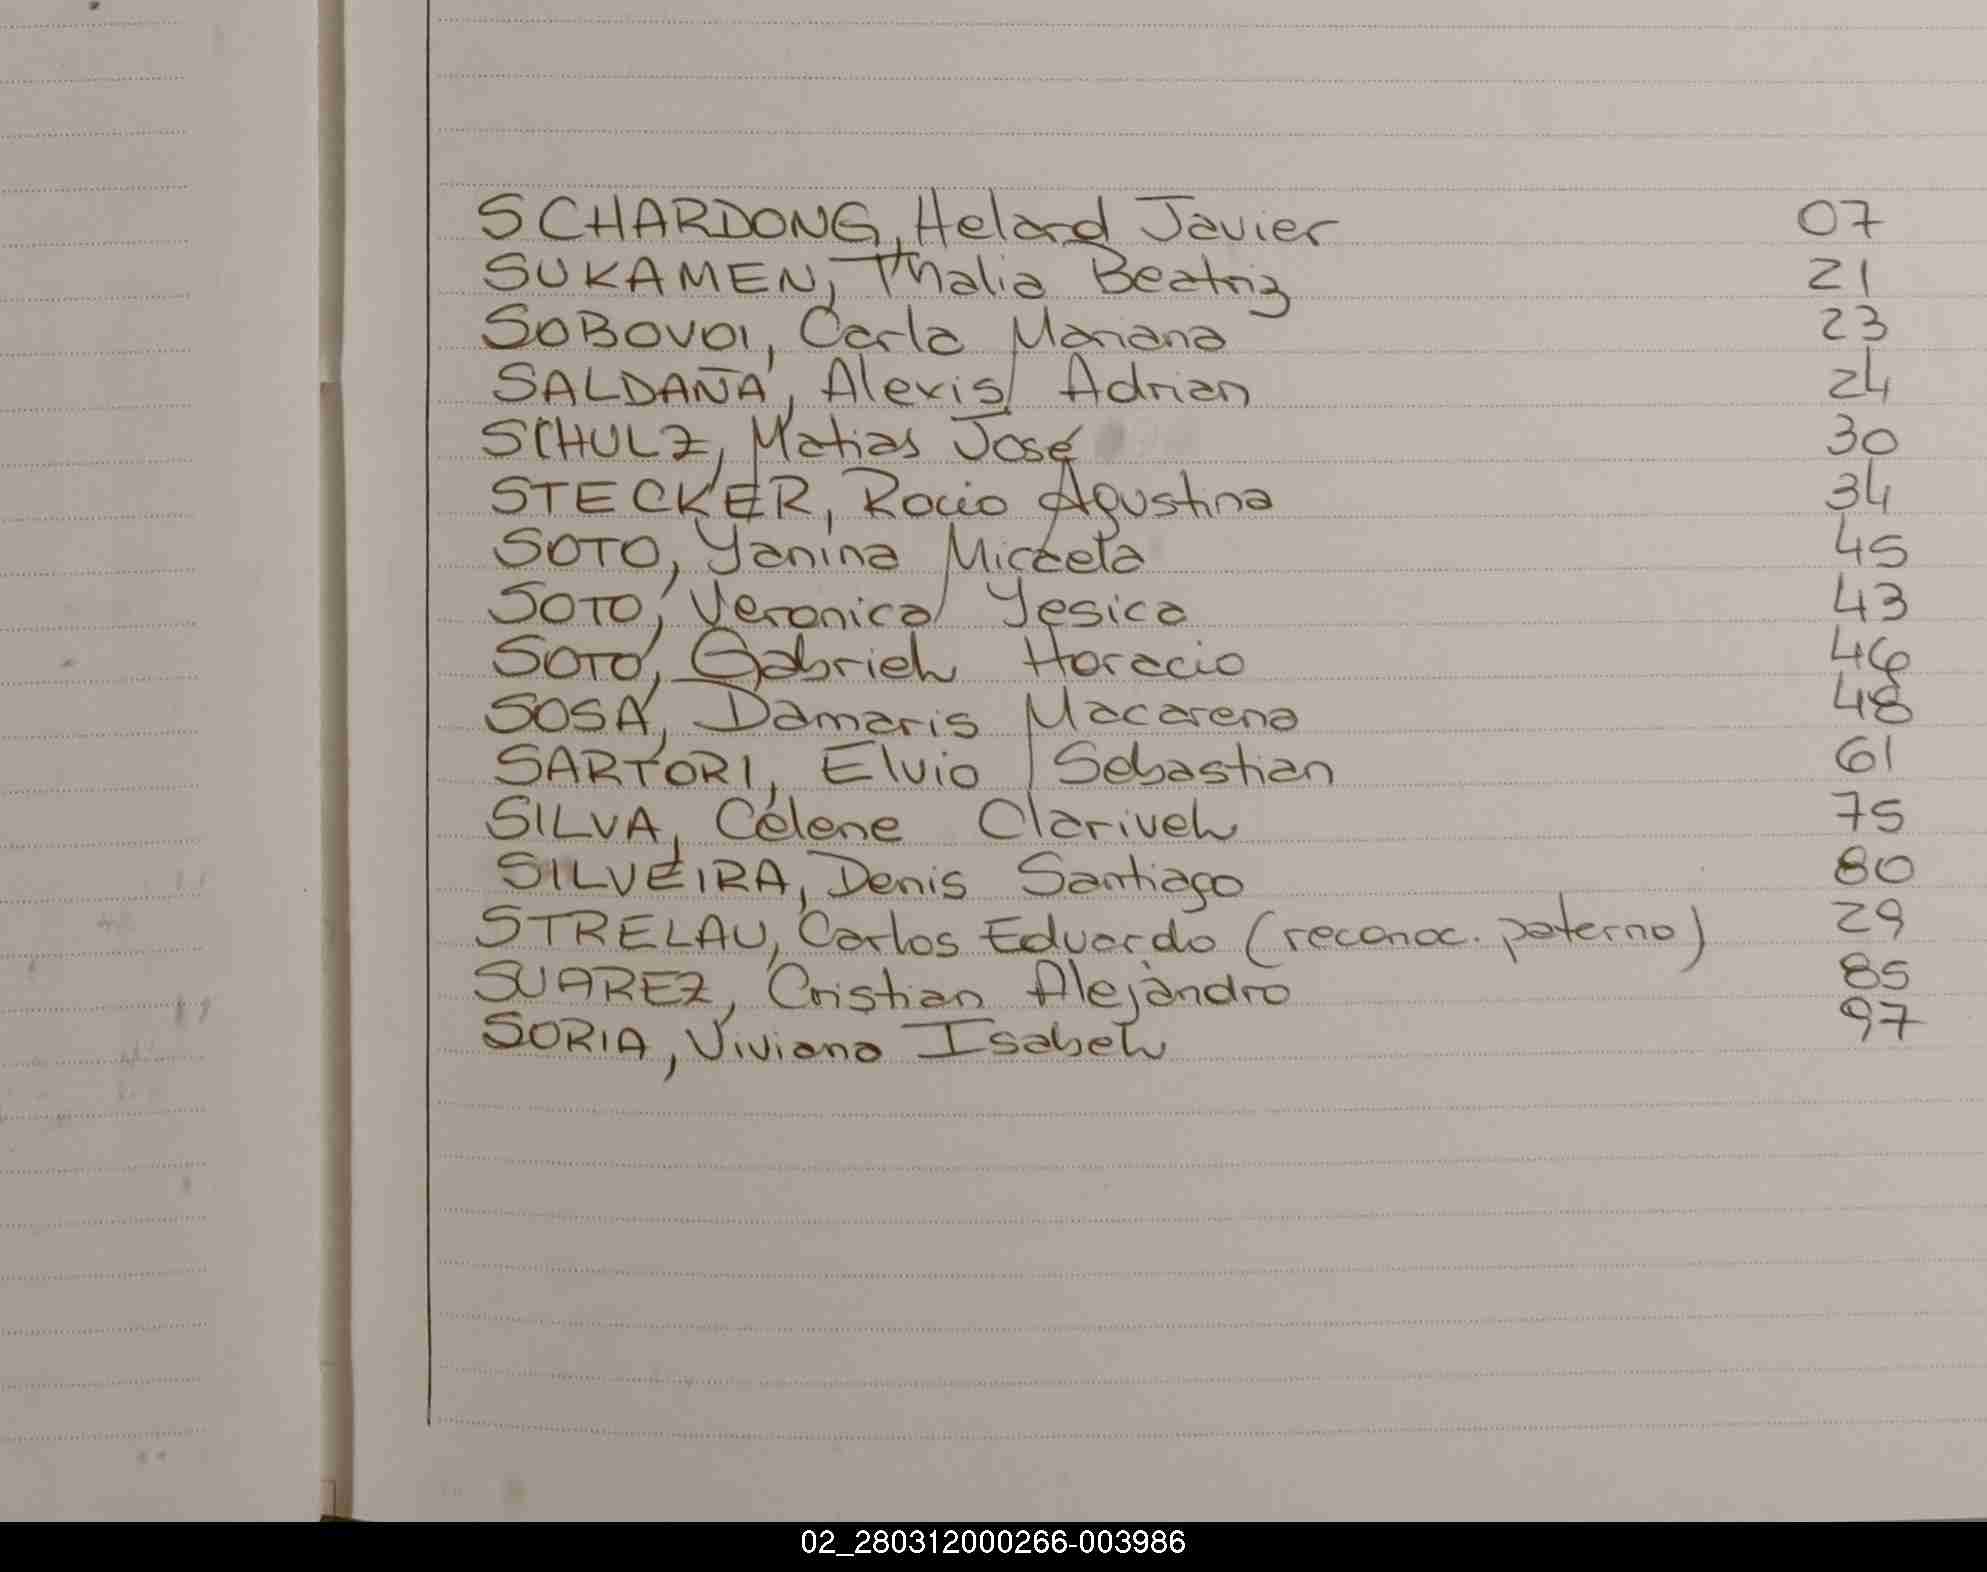 SCHARDONG, Helard Javier 07
SUKAMEN, Thalia Beatriz 21
SOBOVOI, Carla Mariana 23
SALDAÑA, Alexis Adrian 24
SCHULZ, Matias José 30
STECKER, Rocio Agustina 34
SOTO, Yanina Micaela 45
SOTO, Veronica Yesica 43
SOTO, Gabriel Horacio 46
SOSA, Damaris Macarena 48
SARTORI, Elvio Sebastian 61
SILVA, Célene Clarivel 75
SILVEIRA, Denis Santiago 80
STRELAU, Carlos Eduardo (reconoc. paterno) 29
SUAREZ, Cristian Alejandro 85
SORIA, Viviana Isabel 97
02_280312000266-003986